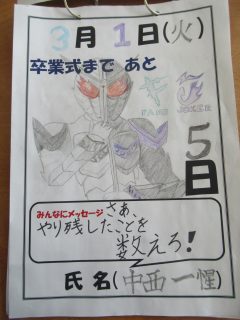 3月1日(火)
卒業式まで あと
FANG JOKER
5
日
みんなにメッセージ さあ、
やり残したことを
数えろ!
氏名(中西一惺)